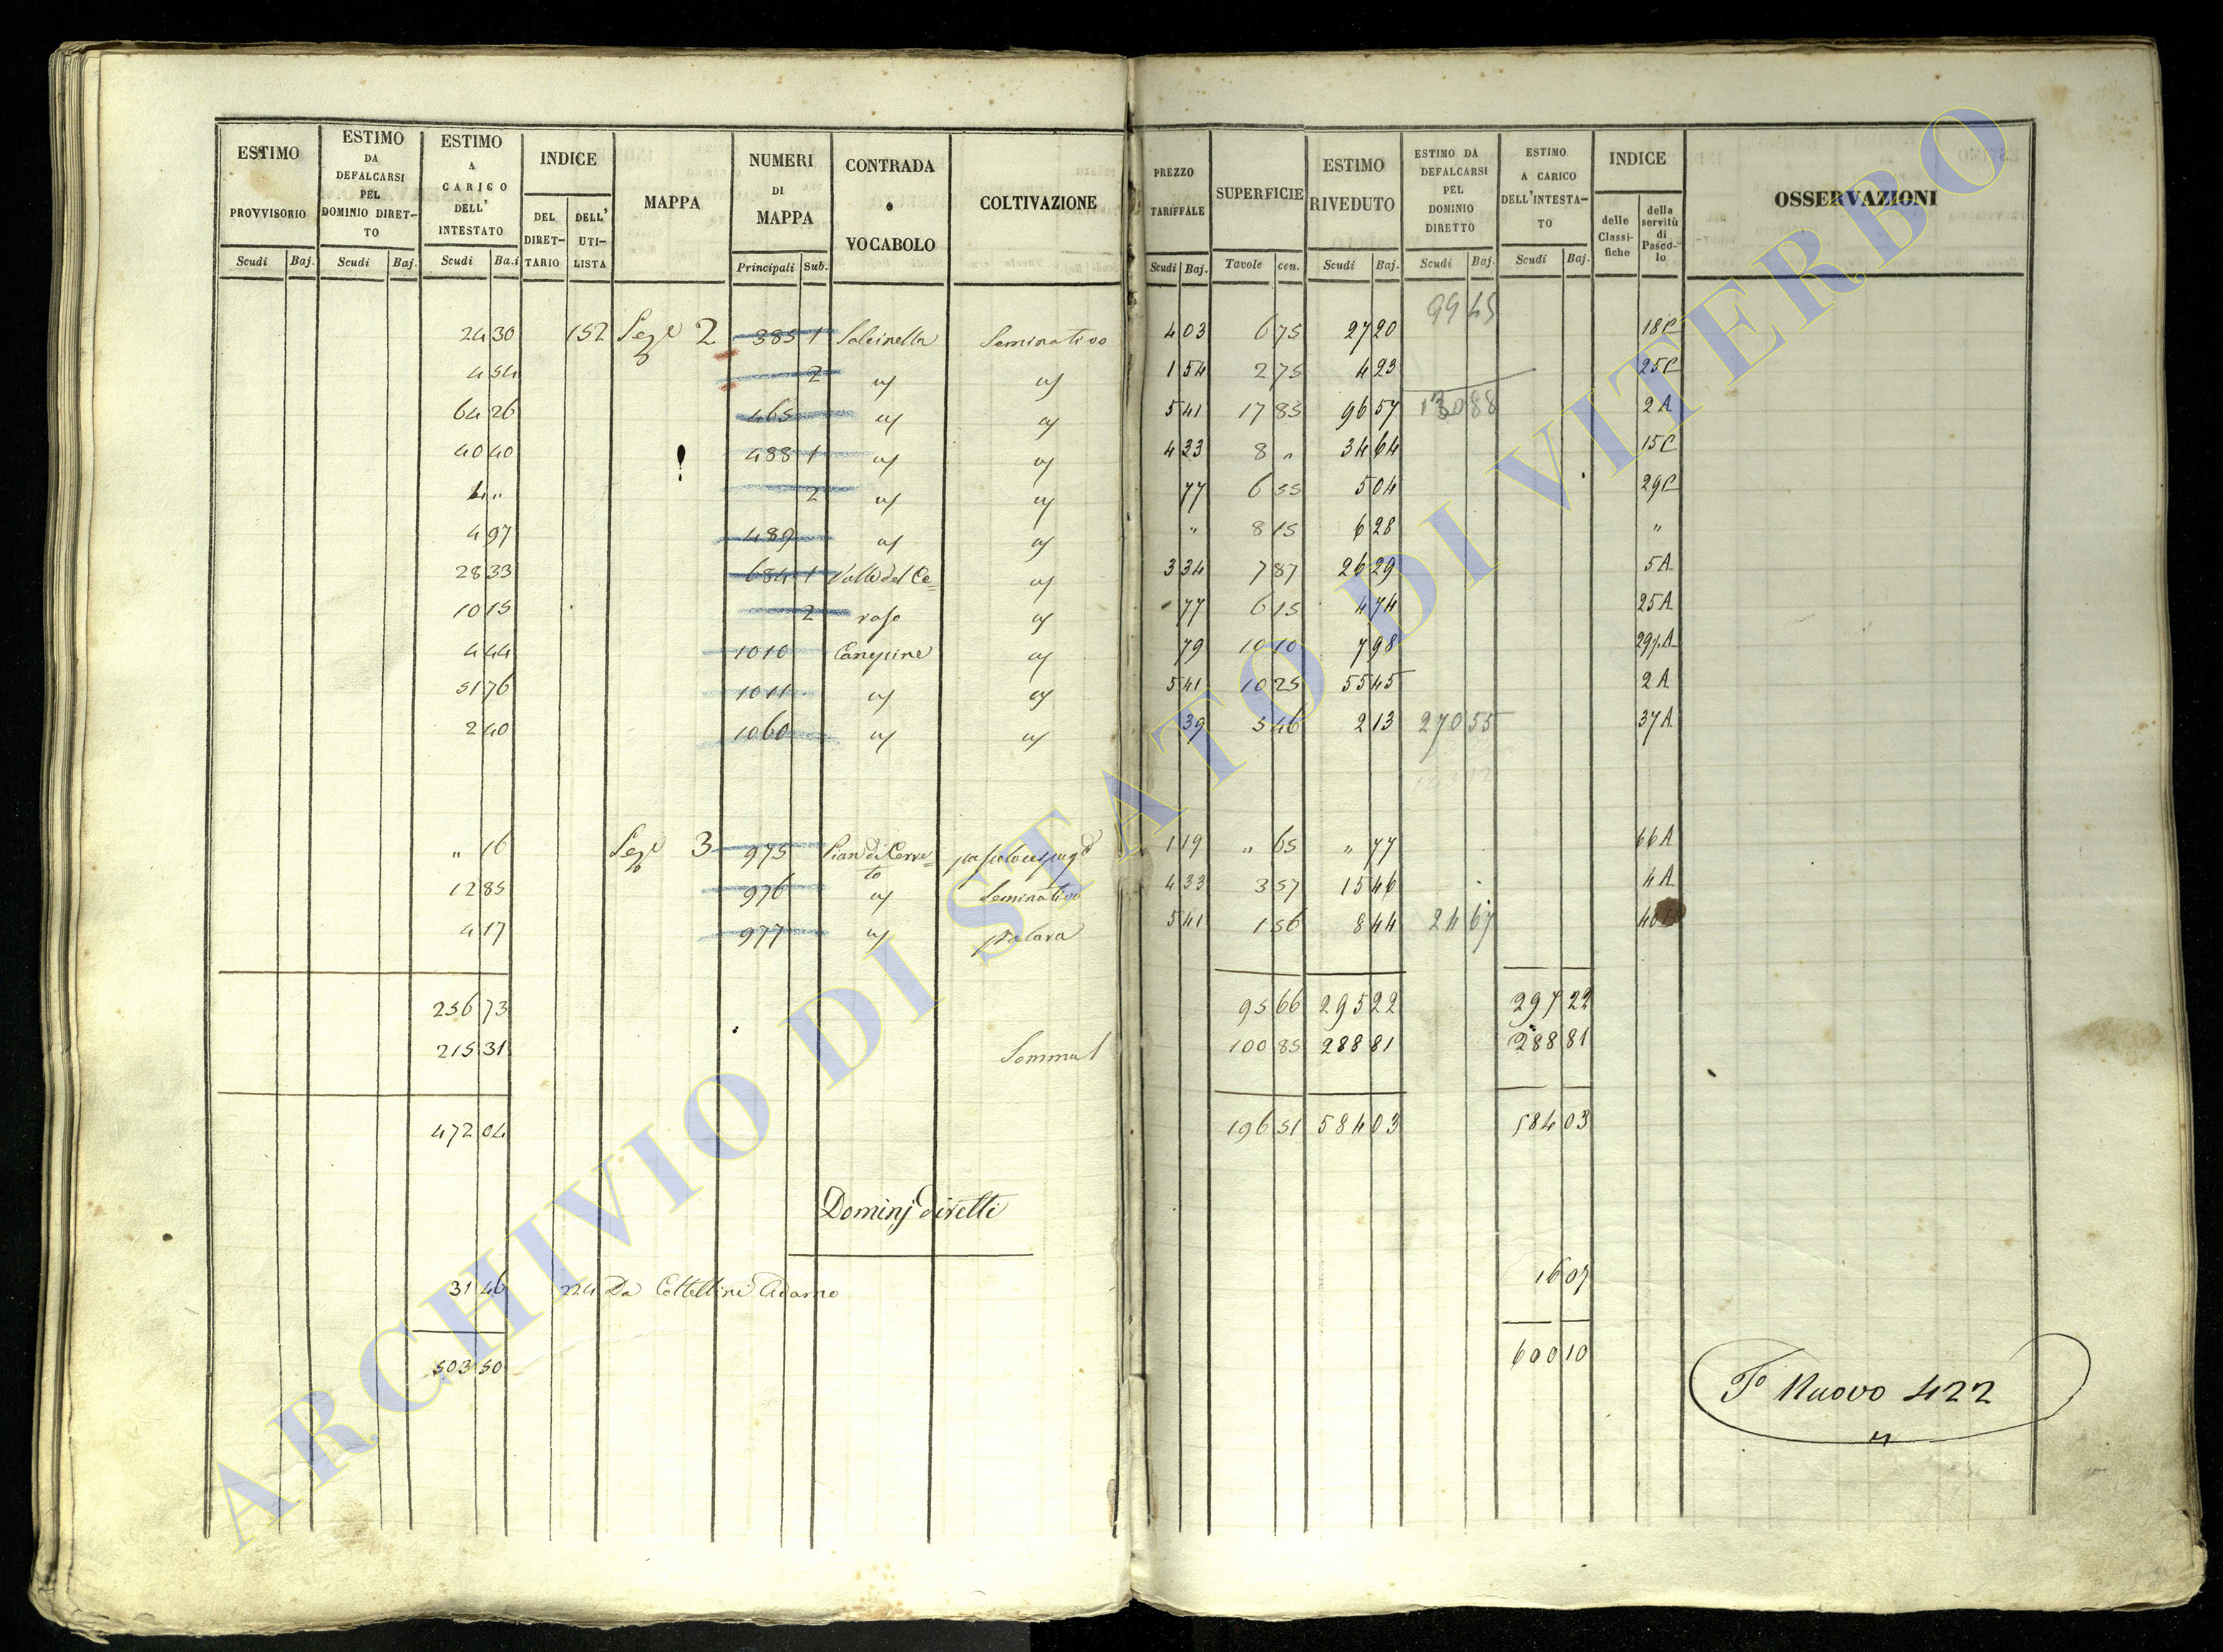 ESTIMO PROVVISORIO Scudi Baj.
ESTIMO DA DEFALCARSI PEL DOMINIO DIRET-TO Scudi Baj.
ESTIMO A CARICO DELL' INTESTATO Scudi Ba.i
INDICE DEL DIRET-TARIO DELL' UTI-LISTA
MAPPA
NUMERI DI MAPPA Principali Sub.
CONTRADA o VOCABOLO
COLTIVAZIONE
PREZZO TARIFFALE Scudi Baj.
SUPERFICIE Tavole cen.
ESTIMO RIVEDUTO Scudi Baj.
ESTIMO DA DEFALCARSI PEL DOMINIO DIRETTO Scudi Baj.
ESTIMO A CARICO DELL'INTESTA-TO Scudi Baj.
INDICE delle Classi-fiche della servitù di Pasco-lo
OSSERVAZIONI
99 45
24 30 152 Sez.e 2 385 1 Salcinella Seminativo 4 03 6 75 27 20 18 C
4 54 2 " " 1 54 2 75 4 23 25 C
64 26 465 " " 5 41 17 85 96 57 130 88 2 A
40 40 488 1 " " 4 33 8 " 34 64 15 C
2 " " 77 6 55 5 04 29 C
4 97 489 " " " 8 15 6 28 "
28 33 684 1 Valle del Ce= " 3 34 7 87 26 29 5 A
10 15 2 raso " 77 6 15 4 74 25 A
4 44 1010 Canepine " 79 10 10 7 98 A
51 76 1011 " " 5 41 10 25 55 45 2 A
2 40 1060 " " 39 5 46 2 13 270 55 37 A
" 16 Sez.e 3 975 Pian di Cerre= to 1 19 " 65 " 77 66 A
12 85 976 " Seminativo 4 33 3 57 15 46 4 A
4 17 977 " 5 41 1 56 8 44 24 67
256 73 95 66 295 22 22
215 31 Somma 100 85 288 81 288 81
472 04 196 51 584 03 584 03
Dominj diretti
31 46 224 Da Coltellini Adamo 16 07
503 50 600 10
F.o Nuovo 422
ARCHIVIO DI STATO DI VITERBO